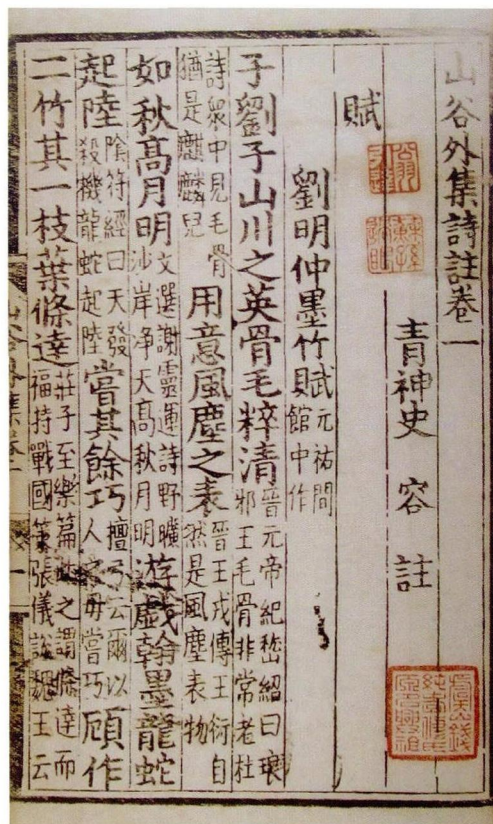 山谷外集詩註卷一
青神史 容 註
賦
劉明仲墨竹賦元祐間館中作
子劉子山川之英骨毛粹清晉元帝紀嵇紹曰琅邪王毛骨非常老杜
詩衆中見毛骨猶是麒麟兒用意風塵之表晉王戎傳王衍自然是風塵表物
如秋髙月明文選謝靈運詩野曠沙岸净天髙秋月明遊戲翰墨龍蛇
起陸隂符經曰天發殺機龍蛇起陸嘗其餘巧檀弓云爾以人之母嘗巧顧作
二竹其一枝葉條達莊子至樂篇此之謂條達而福持戰國策張儀説魏王云